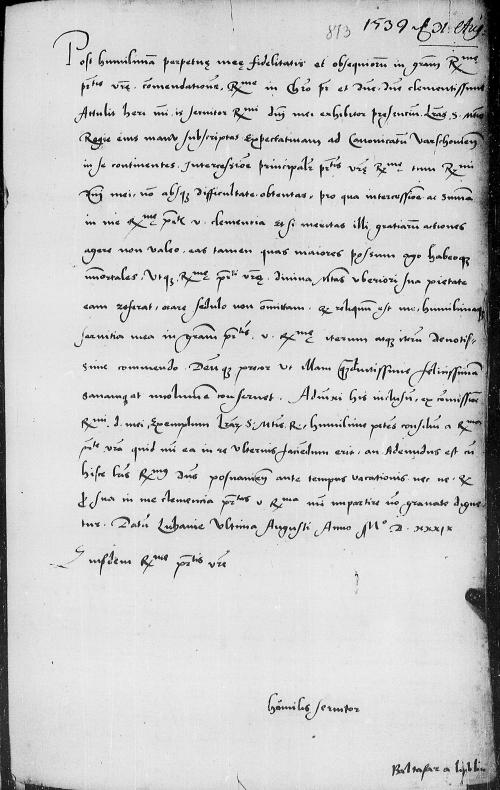 873 1539 31. Aug.
Post humilimam perpetuę meę fidelitatis et obsequiorum in gratiam R^mę
p^tis vrę. comendatione, R^me in Chro pr et dne, dne clementissime
Attulit heri mi. is seruitor R^mi dni mei exhibitor presencium lras. S. M^tis
Regie eius manu subscriptas expectatiuam ad Canonicatum Varschouiensem
in se continentes. Intercessione principaliter p^tis vrę R^mę tum R^mi
dni mei, no absq difficultate obtentas, pro qua intercessione ac summa
in me R^mę p^tis v. clemencia Et si meritas illi gratiarum actiones
agere non valeo. eas tamen quas maiores possum ago habeoq
immortales. Utq R^mę p^ti vrę, diuina M^tas uberiori sua pietate
eam referat, orare sedulo non omittam. Et reliquum est me, humilimaq
seruitia mea in gratiam p^tis. v. R^mę iterum atq iterum deuotis-
sime commendo. Deum q precor ut illam q diutissime felicissimam
sanamq et incolumem conseruet. Adiunxi his inclusum, ex comissione
R^mi. d. mei, Exemplum lrarum S. M^tis R., humilime petens consilium a R^ma
p^te vra quid mi ea in re ulterius faciendum erit. an Adeundus est cum
hisce lris R^mus Dns posnaniensis ante tempus vacationis nec ne. Et
p sua in me clemencia p^tas v R^ma mi impartire no grauate digne
tur. Datum Lubanie Ultima Augusti Anno M^o D. xxxix
Eiusdem R^me p^tis vre
humilis seruitor
Baltasar a